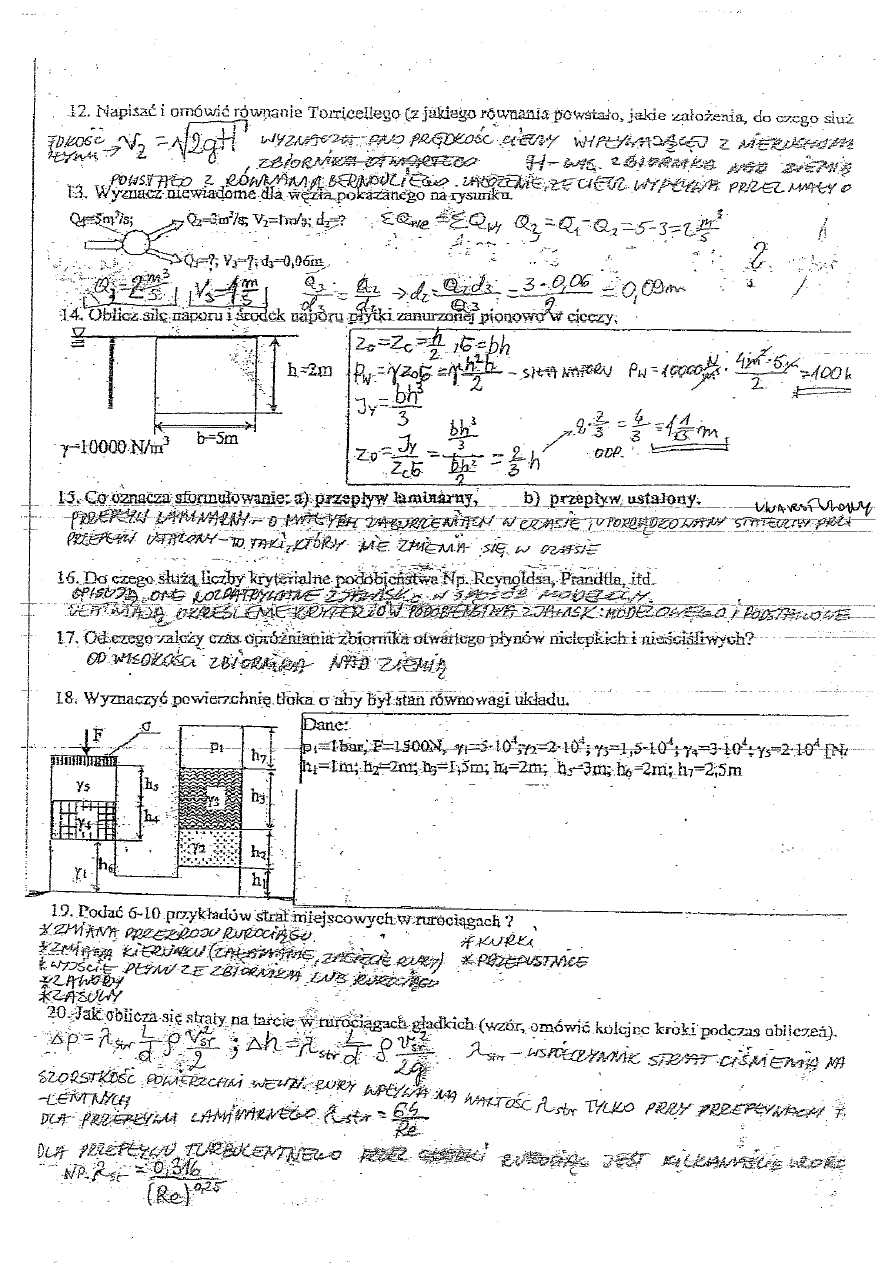 12. Napisać i omówić równanie Torricellego (z jakiego równania powstało, jakie założenia, do czego służ
PRĘDKOŚĆ PŁYNU → V₂ = √2gH WYZNACZA ONO PRĘDKOŚĆ CIECZY WYPŁYWAJĄCEJ Z NIERUCHOM
ZBIORNIKA OTWARTEGO H - wys. ZBIORNIKA NAD ZIEMIĄ
POWSTAŁO Z RÓWNANIA BERNOULIEGO. ZAŁOŻENIE, ŻE CIECZ WYPŁYWA PRZEZ MAŁY O
13. Wyznacz niewiadome dla węzła pokazanego na rysunku.
Q₁=5m³/s; Q₂=3m³/s; V₂=1m/s; d₂=? ΣQwe = ΣQwy Q₃ = Q₁ - Q₂ = 5-3 = 2 m³/s
Q₃=?; V₃=?; d₃=0,06m
Q₃ = 2 m³/s V₃ = 1 m/s Q₃/d₃ = Q₂/d₂ → d₂ = Q₂d₃/Q₃ = 3·0,06/2 = 0,09m
14. Oblicz siłę naporu i środek naporu płytki zanurzonej pionowo w cieczy.
z₀ = z_c = h/2, σ = bh
h=2m
P_w = γz₀σ = γ h²b/2 - SIŁA NAPORU P_w = 10000 N/m³ · 4m²·5m/2 = 100k
J_y = bh³/3
γ=10000 N/m³ b=5m
z₀ = J_y/z_cσ = bh³/3 / bh²/2 = 2/3 h 2·2/3 = 4/3 = 1 1/3 m
ODP.
15. Co oznacza sformułowanie: a) przepływ laminarny, b) przepływ ustalony.
UWARSTWIONY
PRZEPŁYW LAMINARNY - O MAŁYCH ZABURZENIACH W CZASIE, UPORZĄDZKOWANY STATECZNY PRZE
PRZEPŁYW USTALONY - TO TAKI, KTÓRY NIE ZMIENIA SIĘ W CZASIE
16. Do czego służą liczby kryterialne podobieństwa Np. Reynoldsa, Prandtla, itd.
OPISUJĄ ONE ROZPATRYWANE ZJAWISK. W SPOSÓB MODELOWY.
UŁATWIAJĄ OKREŚLENIE KRYTERIÓW PODOBIEŃSTWA ZJAWISK: MODELOWEGO I PODSTAWOWE
17. Od czego zależy czas opróżniania zbiornika otwartego płynów nielepkich i nieściśliwych?
OD WYSOKOŚCI ZBIORNIKA NAD ZIEMIĄ
18. Wyznaczyć powierzchnię tłoka σ aby był stan równowagi układu.
Dane:
p₁=1bar, F=1500N, γ₁=5·10⁴; γ₂=2·10⁴; γ₃=1,5·10⁴; γ₄=3·10⁴; γ₅=2·10⁴ [N/
h₁=1m; h₂=2m; h₃=1,5m; h₄=2m; h₅=3m; h₆=2m; h₇=2,5m
F σ
p₁ h₇
γ₅ h₅ γ₃ h₃
γ₄ h₄
γ₂ h₂
γ₁ h₆ h₁
19. Podać 6-10 przykładów strat miejscowych w rurociągach ?
*ZMIANA PRZEKROJU RUROCIĄGU *KURKI
*ZMIANA KIERUNKU (ZAŁAMANIE, ZAGIĘCIE RURY) *PRZEPUSTNICE
*WYJŚCIE PŁYNU ZE ZBIORNIKA LUB RUROCIĄGU
*ZAWORY
*ZASUWY
20. Jak oblicza się straty na tarcie w rurociągach gładkich (wzór, omówić kolejne kroki podczas obliczeń).
Δp = λstr L/d ρ Vśr²/2 ; Δh = λstr L/d ρ Vśr²/2g λstr - WSPÓŁCZYNNIK STRAT CIŚNIENIA NA
SZORSTKOŚĆ POWIERZCHNI WEWN. RURY WPŁYWA NA WARTOŚĆ λstr TYLKO PRZY PRZEPŁYWACH T
-LENTNYCH
DLA PRZEPŁYWU LAMINARNEGO λstr = 64/Re
DLA PRZEPŁYWU TURBULENTNEGO PRZEZ GŁADKI RUROCIĄG JEST KILKANAŚCIE WZORÓ
NP. λst = 0,316/(Re)^0,25